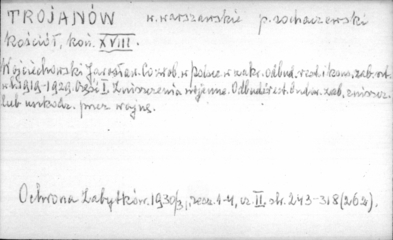 TROJANÓW w. warszawskie p. sochaczewski
kościół, kon. XVIII.
Wojciechowski Jarosław. Co zrob. w Polsce w zakr. odbud. rest. i kons. zab. art.
w l. 1919-1929. Część I. Zniszczenia wojenne. Odbud. i rest. bud. w. zab. zniszcz.
lub uszkodz. przez wojnę.
Ochrona Zabytków. 1930/31, zesz. 1-4, cz. II, str. 243-318 (262).